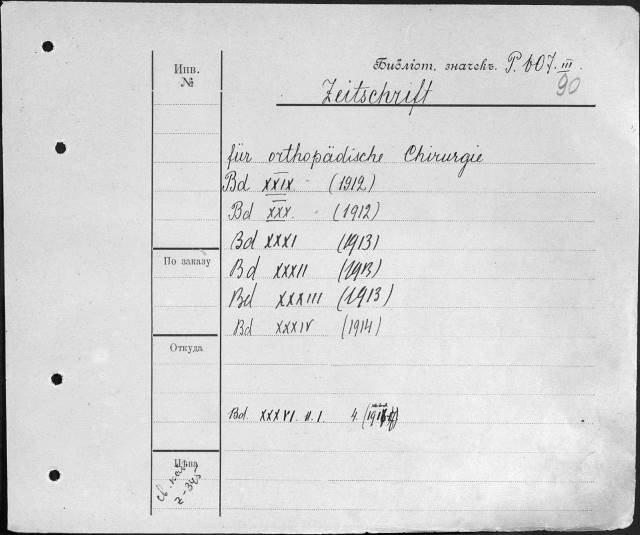 Инв.
№
Библіот. значекъ. P. b07. III
90
Zeitschrift
für orthopädische Chirurgie
Bd XXIX (1912)
Bd XXX. (1912)
Bd XXXI (1913)
Bd XXXII (1913)
Bd XXXIII (1913)
Bd XXXIV (1914)
По заказу
Откуда
Bd. XXXVI. H. 1. 4.
Цѣна